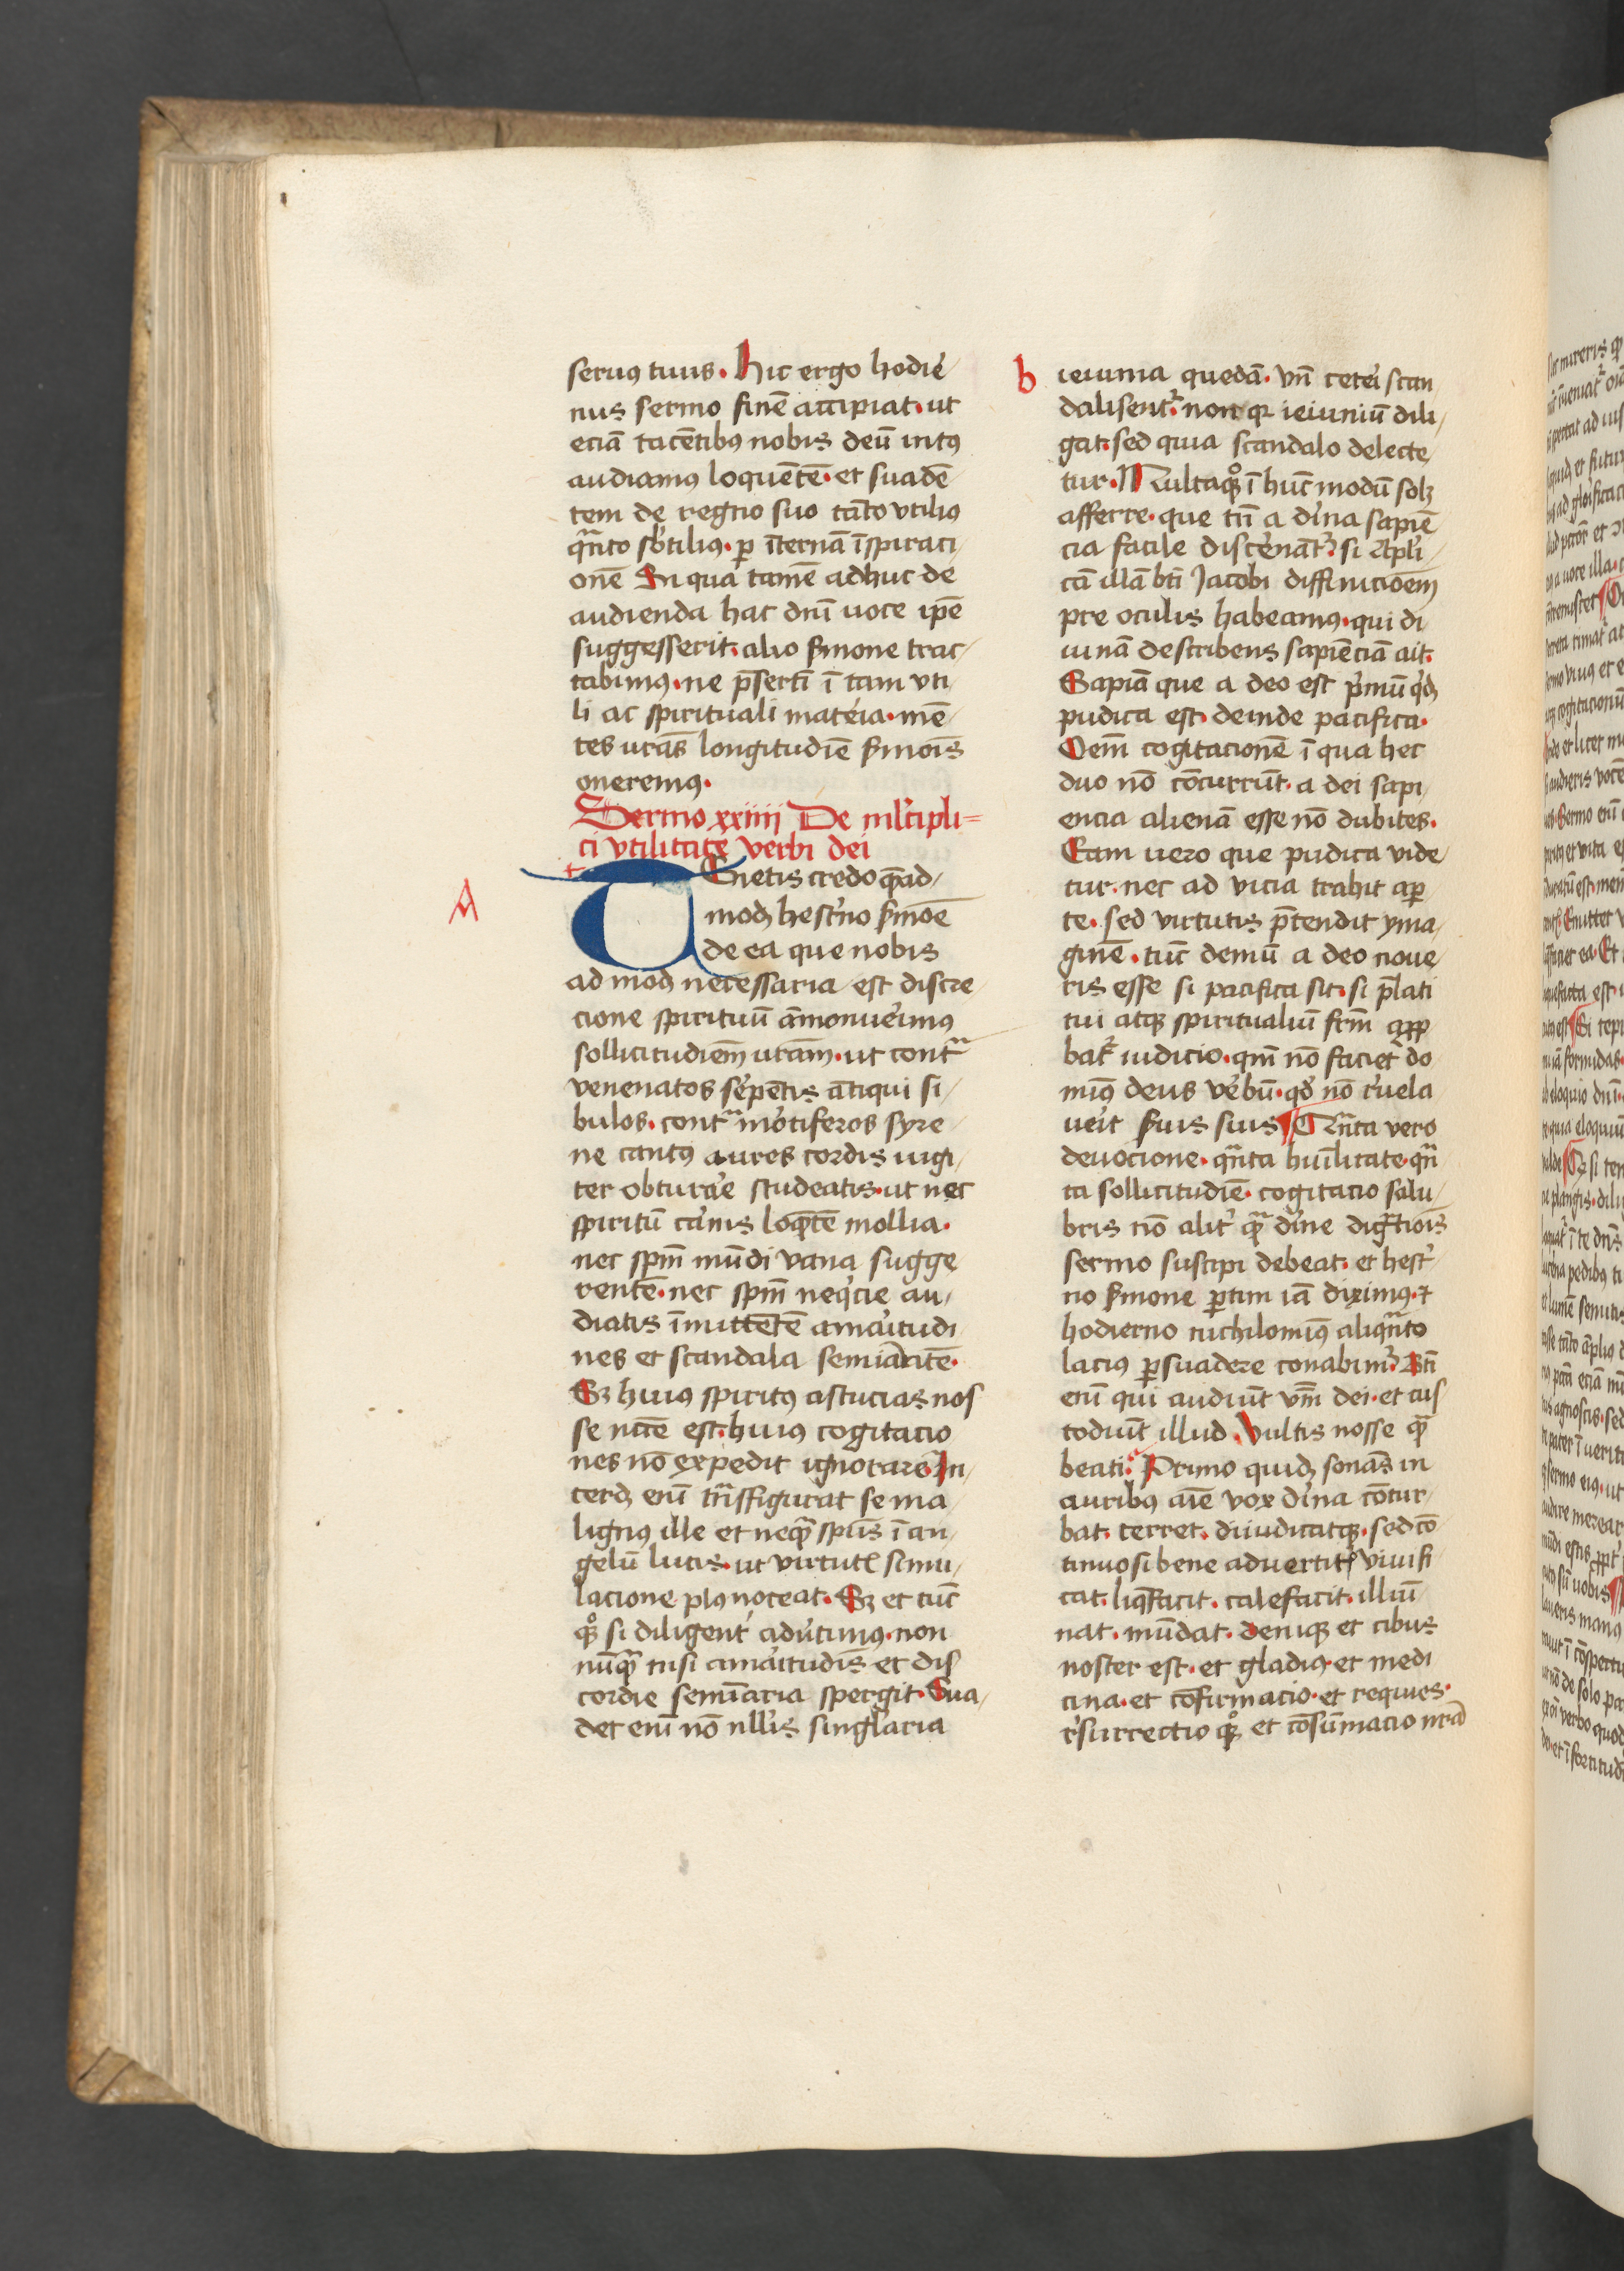 seruꝯ tuus. Hic ergo hodie᷑
nus sermo finē accipiat. ut
eciā tacētibꝯ nobis deū intꝯ
audiamꝯ loquētē. et suadē
tem de regno suo tāto vtiliꝯ
q̄nto sb̓tiliꝯ. ꝑ īternā īspiraci
onē In qua tamē adhuc de
audienda hac dn̄i uoce ip̄e
suggesserit. alio ẜmone trac
tabimꝯ. ne p̄sertī ī tam vti
li ac spirituali mate᷑ia. mē
tes ur̄as longitudīe ẜmoīs
oneremꝯ.
Sermo xxiiij De ml̓tipli=
ci vtilitate verbi dei
A
t
TEnetis credo qēad
modꝫ hest᷑no ẜmoē
de ea que nobis
ad modꝫ necessaria est discre
cione spirituū āmonue᷑imꝯ
sollicitudīem ur̄am. ut contᷓ
venenatos se᷑pētis ātiqui si
bulos. contᷓ mo᷑tiferos syre
ne cantꝯ aures cordis iugi
ter obtura᷑e studeatis. ut nec
spiritū ca᷑nis loq̄tē mollia.
nec sp̄m mūdi vana sugge
rentē. nec sp̄m neq̓cie au
diatis īmittētē ama᷑itudi
nes et scandala semīātē.
Sꝫ huius spiritꝯ astucias nos
se nc̄ce est. huius cogitacio
nes nō expedit ignorare. In
terdꝫ enī trāsfigurat se ma
lignꝯ ille et neqᷓ sp̄us ī an
gelū lucis. ut virtutꝭ simu
lacione plꝯ noceat. Sꝫ et tūc
qͦꝫ si diligent᷑ adu᷑timꝯ. non
nūqᷓ nisi ama᷑itudīs et dis
cordie semīaria spergit. Sua
det enī nō nll̓is singl̓aria
b
ieiunia quedā. vn̄ cete᷑i scan
dalisent᷑. non qꝛ ieiuniū dili
gat. sed quia scandalo delecte
tur. Multa qͦꝫ ī hūc modū solꝫ
afferre. que tn̄ a di᷑na sapiē
cia facile disce᷑nāt᷑. si
cā illā bt̄i Jacobi diffinicioēm
pre oculis habeamꝯ. qui di
uinā describens sapiēciā ait.
Sapīa que a deo est p᷑mū qͥdꝫ
pudica est. deinde pacifica.
Oem̄ cogitacionē ī qua hec
duo nō cōcurrūt. a dei sapi
encia alienā esse nō dubites.
Eam uero que pudica vide
tur. nec ad vicia trahit aꝑ
te. sed virtutis p̄tendit yma
ginē. tūc demū a deo noue
ris esse si pacifica sit. si p̄lati
tui atqꝫ spiritualiū fr̄m
bat᷑ iudicio. qm̄ nō faciet do
minꝯ deus ve᷑bū. qđ nō r᷑uela
ue᷑it ẜuis suis ¶ Qn̄ta vero
deuocione. qn̄ta huīlitate. qn̄
ta sollicitudīe. cogitacio salu
bris nō alit᷑ qᷓ di᷑ne dignatiois
sermo suscipi debeat. et hest᷑
no ẜmone ꝑtim iā diximꝯ. ⁊
hodierno nichilominꝯ aliqn̄to
lacius ꝑsuadere conabim᷑. Bt̄i
enī qui audiūt vm̄ dei. et cus
todiūt illud. Vultis nosse qᷓ
beati. Primo quidꝫ sonās in
auribꝯ aīe vox di᷑na cōtur
bat. terret. diiudicatqꝫ. sed cō
tinuo si bene aduertitꝭ viuifi
cat. liq̄facit. calefacit. illūi
nat. mūdat. deniqꝫ et cibus
noster est. et gladiꝯ. et medi
cina. et cōfirmacio. et requies.
r᷑surrectio qͦꝫ et cōsūmacio nr̄a